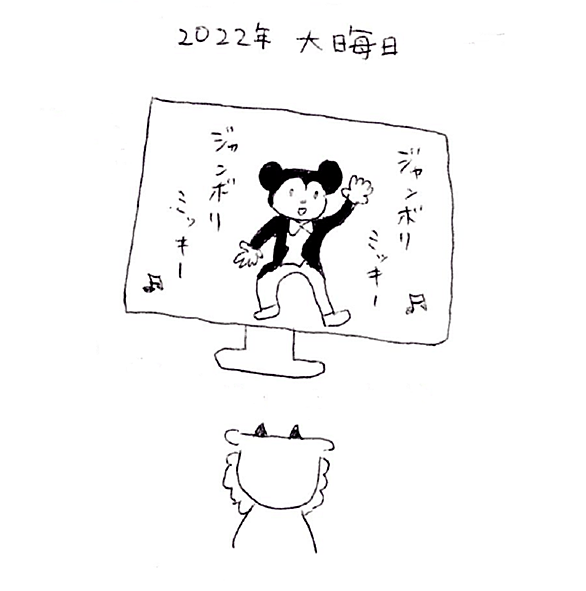 2022年 大晦日
ジャンボリ
ミッキー
ジャンボリ
ミッキー